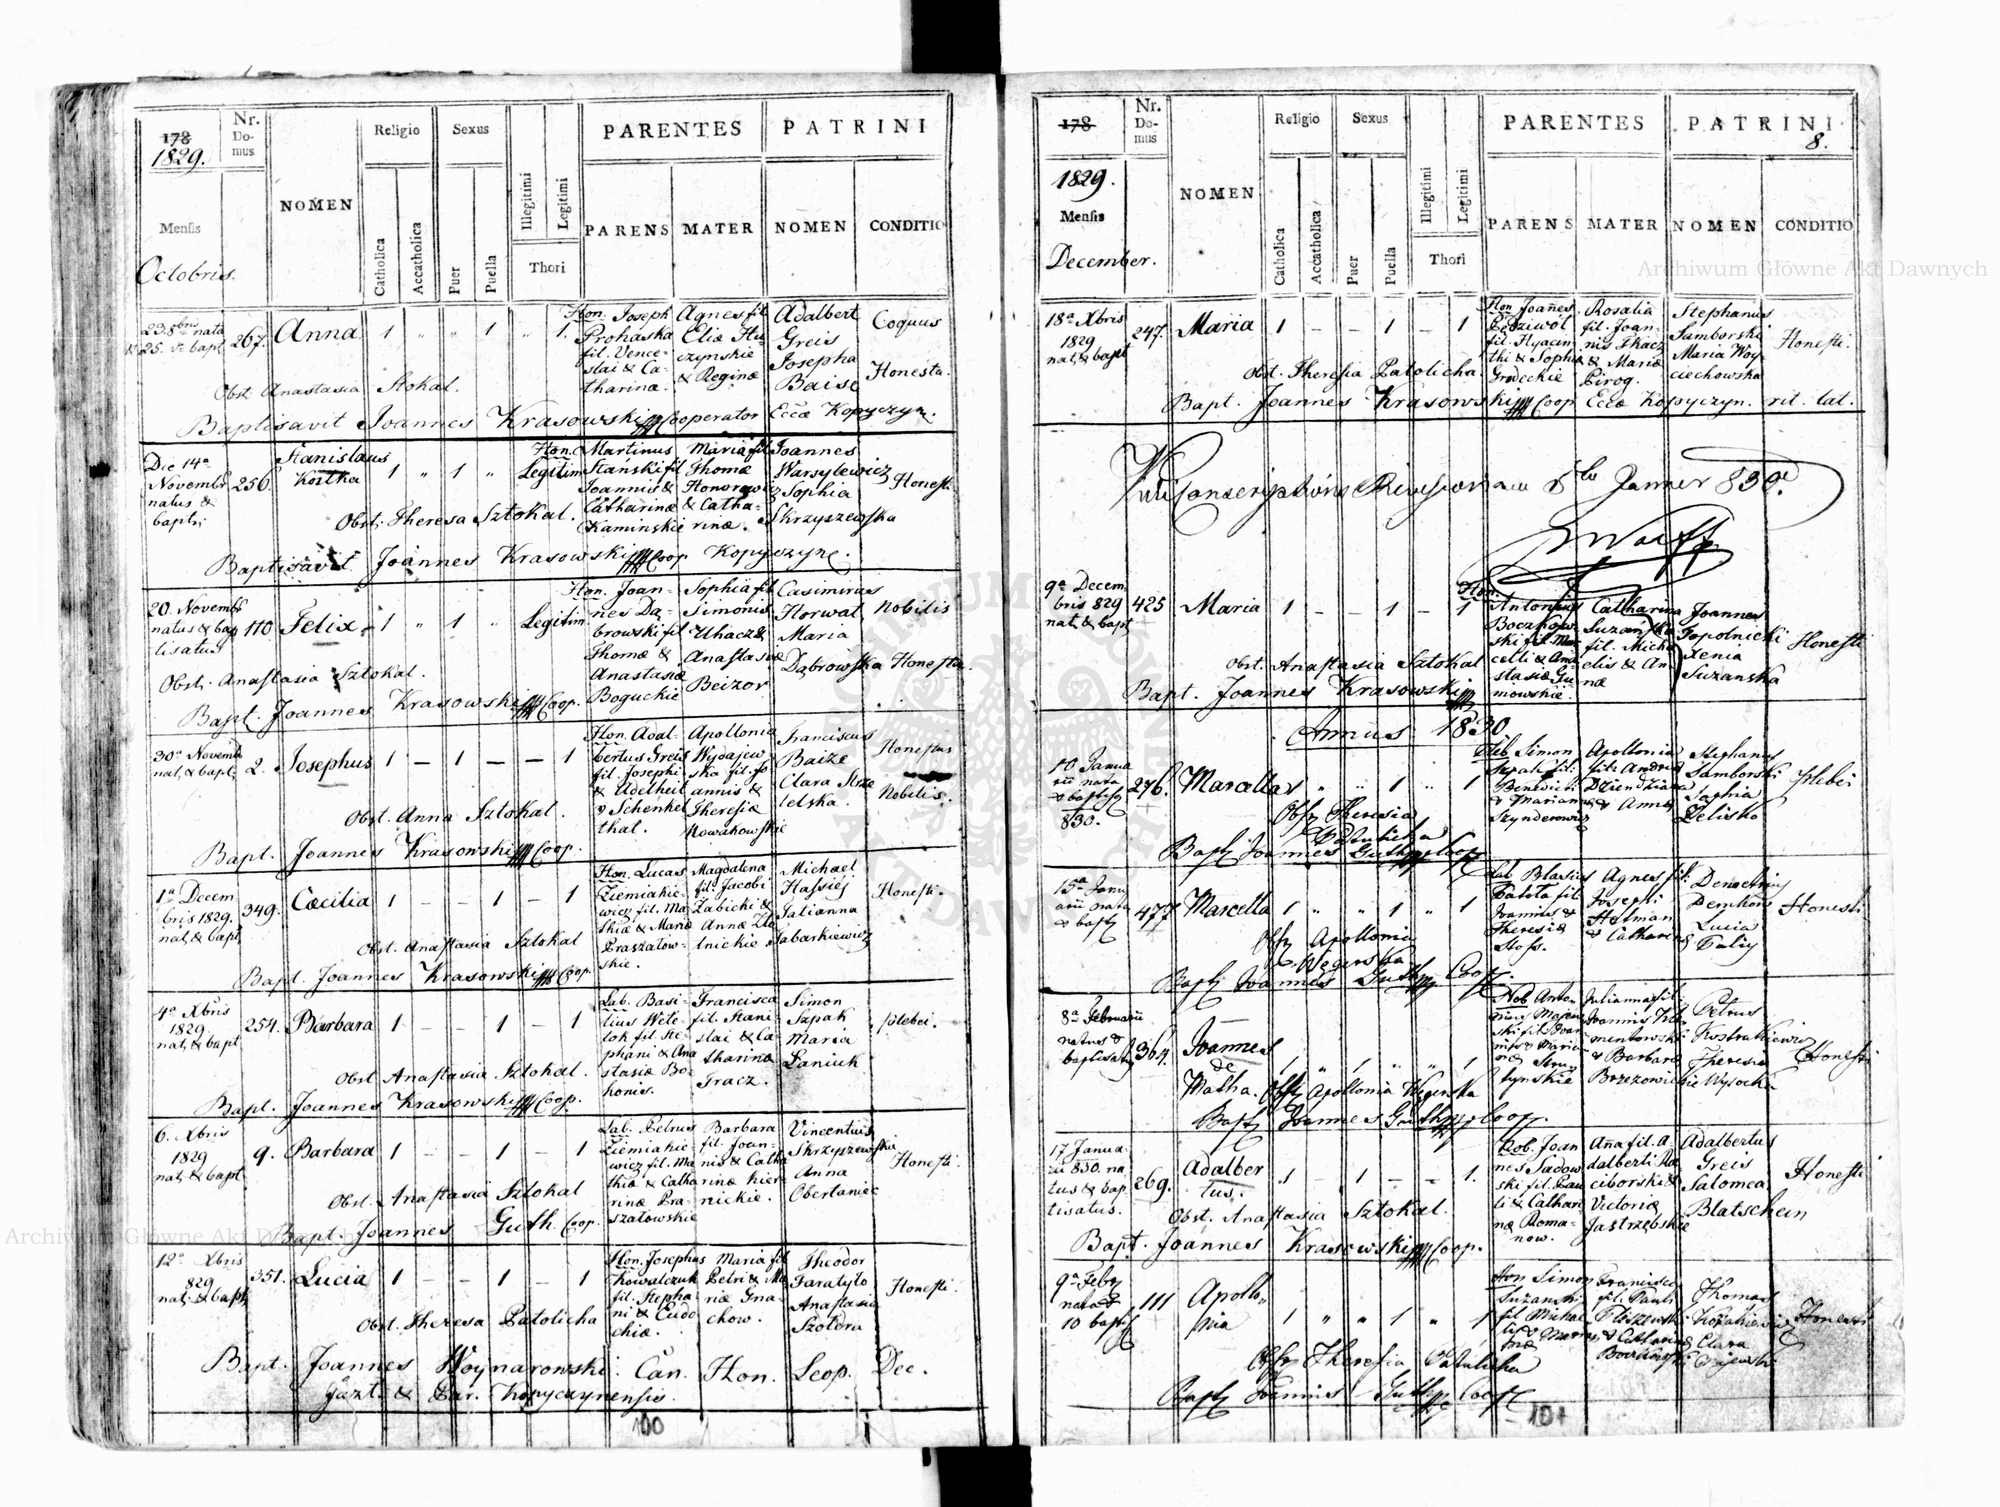 178
1829.
Nr.
Do-
mus
NOMEN
Religio
Sexus
PARENTES
PATRINI
Mensis
Octobris.
Catholica
Accatholica
Puer
Puella
Illegitimi
Legitimi
Thori
PARENS
MATER
NOMEN
CONDITIO
23. 8bris nata
25. bapt
267.
Anna
1
"
"
1
"
1.
Hon. Joseph
Prohaska
fil. Vence-
slai & Ca-
tharinæ.
Agnes fil
Eliæ Hu
czynskie
& Reginæ
Adalbert
Greis
Josepha
Baise
Coquus
Honesta.
Obst. Anastasia Stokal.
Baptisavit Joannes Krasowski Cooperator Eccæ Kopyczyn.
Die 14a
Novembr
natus &
bapt.
256.
Stanislaus
Kostka
1
"
1
"
Legitim
Hon. Martinus
Stański fil
Joannis &
Catharinæ
Kaminskie
Maria fil
Thomæ
Honorowicz
& Catha-
rinæ.
Joannes
Warsylewicz
Sophia
Skrzyszewska
Honesti
Obst. Theresa Sztokal.
Baptisavit Joannes Krasowski Coop Kopyczync.
20. Novembr
natus & bap
tisatus
110
Felix
1
"
1
"
Legitim
Hon. Joan-
nes Dą-
browski fil
Thomæ &
Anastasiæ
Boguckie
Sophia fil
Simonis
Uhacz &
Anastasiæ
Beizor
Casimirus
Horwat
Maria
Dąbrowska
Nobilis
Honesta
Obst. Anastasia Sztokal.
Bapt. Joannes Krasowski Coop.
30a Novemb
nat. & bapt.
2.
Josephus
1
–
1
–
–
1
Hon. Adal-
bertus Greis
fil. Josephi
& Adelheit
Schenkel
thal.
Apollonia
Wydajew-
ska fil. Jo
annis &
Theresiæ
Nowakowskie
Franciscus
Baize
Clara Strze
telska.
Honestus
Nobilis.
Obst. Anna Sztokal.
Bapt. Joannes Krasowski Coop.
1a Decem
bris 1829.
nat. & bapt.
349.
Cæcilia
1
–
–
1
–
1
Hon. Lucas
Ziemiakie-
wicz fil. Ma
thiæ & Mariæ
Praszatow-
skie.
Magdalena
fil. Jacobi
Zabicki &
Annæ Zło
tnickie
Michael
Hassiej
Julianna
Sabarkiewicz
Honesti.
Obst. Anastasia Sztokal
Bapt. Joannes Krasowski Coop.
4a Xbris
1829.
nat. & bapt
254.
Barbara
1
–
–
1
–
1
Lab. Basi-
lius Wite-
tok fil. Ste-
phani & Ana
stasiæ Bo-
honis.
Francisca
fil. Stani-
slai & Ca
tharinæ
Tracz.
Simon
Szpak
Maria
Laniuk
plebei.
Obst. Anastasia Sztokal.
Bapt. Joannes Krasowski Coop.
6. Xbris
1829
nat. & bapt
9.
Barbara
1
–
–
1
–
1
Lab. Petrus
Ziemiakie-
wicz fil. Ma
thiæ & Catha
rinæ Pra-
szatowskie
Barbara
fil. Joan-
nis & Catha
rinæ Kier
nickie.
Vincentius
Skrzyszewskie
Anna
Obertaniec
Honesti.
Obst. Anastasia Sztokal
Bapt. Joannes Guth. Coop.
12a Xbris
829
nat. & bapt.
351.
Lucia
1
–
–
1
–
1
Hon. Josephus
Kowalczuk
fil. Stepha-
ni & Eudo
chiæ.
Maria fil
Petri & Ma
riæ Gna-
chow.
Theodor
Taratyto
Anastasia
Szotdra
Honesti.
Obst. Theresa Patolicha
Bapt. Joannes Woynarowski. Can. Hon. Leop. Dec.
Gazt. & Par. Kopyczynensis.
100
178
1829.
Mensis
December.
Nr.
Do-
mus
NOMEN
Religio
Sexus
PARENTES
PATRINI
8.
Catholica
Accatholica
Puer
Puella
Illegitimi
Legitimi
Thori
PARENS
MATER
NOMEN
CONDITIO
18a Xbris
1829
nat. & bapt
247.
Maria
1
–
–
1
–
1
Hon. Joañes
Bedziwol
fil. Hyacin
thi & Sophiæ
Grodeckie
Rosalia
fil. Joan-
nis Tkacz
& Mariæ
Pirog.
Stephanus
Samborski
Maria Woy-
ciechowska
Honesti.
Obst. Theresia Patolicha.
Bapt. Joannes Krasowski Coop Eccæ Kopyczyn. rit. lat.
Conscriptions Revision am Jänner 830.
9a Decem
bris 829
nat. & bapt
425
Maria
1
–
–
1
–
1
Hon.
Antonius
Boczkow-
ski fil. Mar
celli & Ana
stasiæ Gu
mowskie.
Catharina
Suzanska
fil. Micha
elis & An-
næ
Joannes
Topolnicki
Xenia
Suzanska
Honesti
Obst. Anastasia Sztokal
Bapt. Joannes Krasowski
Annus 1830.
10 Janua
rii nata
& baptis
830.
276.
Marcella
1
"
"
1
"
1
Simon
Szpak fil.
Benedicti
& Mariannæ
Szynderowicz
Apollonia
fil. Andreæ
Dziendziura
& Annæ
Stephanus
Samborski
Sophia
Zelisko
Plebei
Obst. Theresia
Patulicka
Bapt. Joannes Guth Coop
15a Janu
arii nata
& bapt
477
Marcella
1
"
"
1
"
1
Lab Blasius
Batuta fil
Joannis &
Theresiæ
Stoss.
Agnes fil.
Josephi
Hofman
& Catharinæ
Demetrius
Demkow
Lucia
Faliy
Honesti
Obst. Apollonia
Wegerska
Bapt. Joannes Guth Coop.
8a Februarii
natus &
baptisatus
364.
Joannes
de
Matha.
Petrus
Kostrakiewicz
Theresia
Wysocka
Honesti
Obst. Apollonia Wegerska
Bapt. Joannes Guth Coop.
17 Janua-
rii 830. na
tus & bap
tisatus.
269.
Adalber
tus.
1
–
1
–
–
1.
Nob. Joan
nes Sadow
ski fil. Pau
li & Cathari
næ Roma-
now.
Aña fil. A-
dalberti Ra
ciborski &
Victoriæ
Jastrzębskie
Adalbertus
Greis
Salomea
Blatschein
Honesti
Obst. Anastasia Sztokal.
Bapt. Joannes Krasowski Coop.
9a Febr
nata &
10 bapt
111
Apollo-
nia
1
"
"
1
"
1
Hon Simon
Suzanski
fil Michae
lis &
Francisca
fil. Pauli
& Catharinæ
Thomas
Clara
Honesti
Obst. Theresia Patulicha
Bapt. Joannes Guth Coop
101
Archiwum Główne Akt Dawnych
Archiwum Główne Akt Dawnych
ARCHIWUM GŁÓWNE AKT DAWNYCH